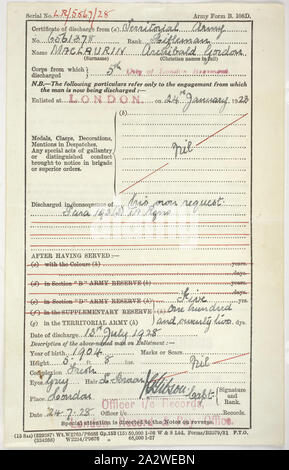 Serial No. LR/5567/28 Army Form B. 108D.
Certificate of discharge from (a) Territorial Army
No. 6561278 Rank Rifleman
Name MACLAURIN Archibald Gordon
(Surname) (Christian names in full)
Corps from which discharged 5th City of London Regiment
N.B.—The following particulars refer only to the engagement from which the man is now being discharged:—
Enlisted at LONDON. on 24th January 1923
(b)
Medals, Clasps, Decorations, Mentions in Despatches. Any special acts of gallantry or distinguished conduct brought to notice in brigade or superior orders.
Nil
Discharged in consequence of his own request.
Para
AFTER HAVING SERVED:—
(c) with the Colours (h) years. days.
(d) in Section "B" ARMY RESERVE (h) years. days.
(e) in Section "D" ARMY RESERVE (h) Five years.
(f) in the SUPPLEMENTARY RESERVE (h) one hundred
(g) in the TERRITORIAL ARMY (h) and seventy two days.
Date of discharge 13th July 1928
Description of the above-named man on Enlistment:—
Year of birth 1904 Marks or Scars
Height 5 ft. 8 ins.
Nil
Complexion Fresh
Eyes Grey Hair Lt. Brown
Place London Capt. Signature and Rank.
Officer i/c Records,
Date 24.7.28 Officer i/c Records.
Special attention is directed to the Notes on reverse.
alamy
Image ID: 2A2WEBN
www.alamy.com